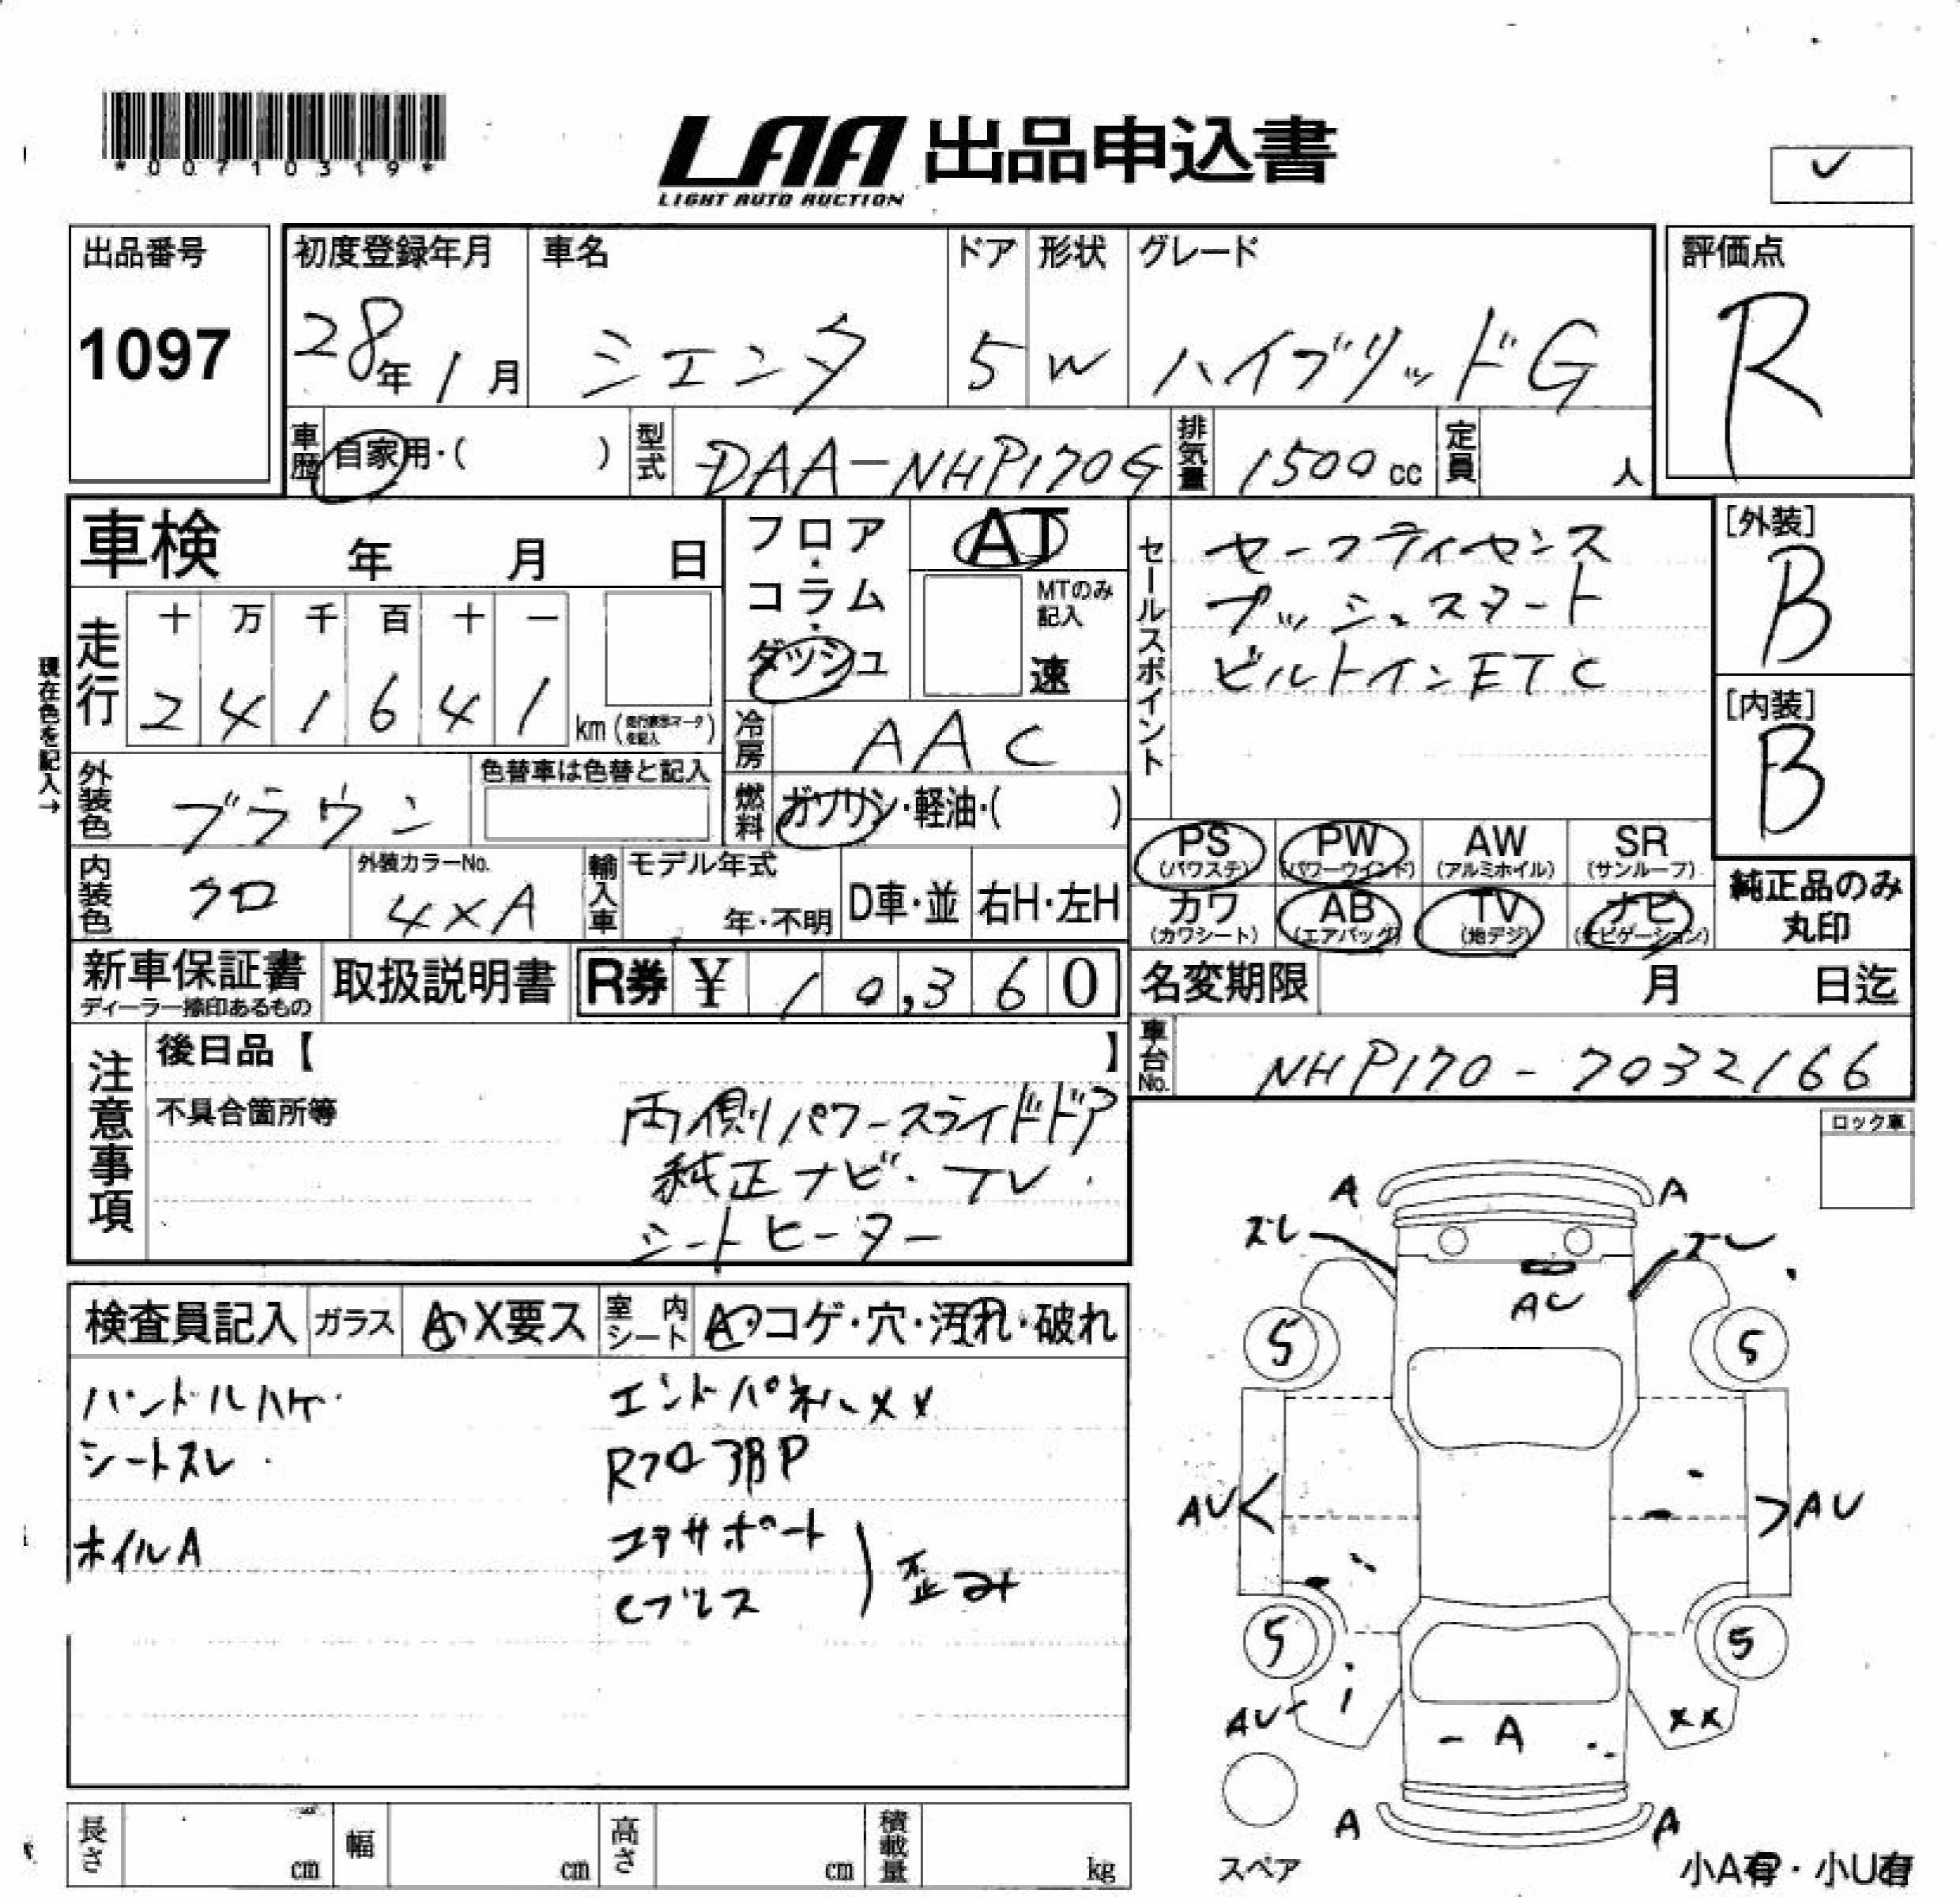 *00710319*
LAA 出品申込書
LIGHT AUTO AUCTION
出品番号 初度登録年月 車名 ドア 形状 グレード 評価点
1097 28年1月 シエンタ 5 W ハイブリッドG R
車歴 自家用・( ) 型式 DAA-NHP170G 排気量 1500cc 定員 人
車検 年 月 日
フロア・コラム・ダッシュ
AT
MTのみ記入
速
セールスポイント
セーフティセンス
プッシュスタート
ビルトインETC
[外装]
B
[内装]
B
現在色を記入→
走行 十 万 千 百 十 一
2 4 1 6 4 1 km
冷房 AAC
外装色 ブラウン
色替車は色替と記入
燃料 ガソリン・軽油・( )
内装色 クロ
外装カラーNo.
4XA
輸入車 モデル年式
年・不明 D車・並 右H・左H
PS (パワステ) PW (パワーウインド) AW (アルミホイル) SR (サンルーフ)
カワ (カワシート) AB (エアバッグ) TV (地デジ) ナビ (ナビゲーション)
純正品のみ
丸印
新車保証書 取扱説明書 R券 ¥ 10,360
名変期限 月 日迄
車台No. NHP170-7032166
注意事項
後日品【 】
不具合箇所等
両側パワースライドドア
純正ナビ・TV
シートヒーター
ロック車
検査員記入 ガラス A・X要ス 室内シート A・コゲ・穴・汚れ・破れ
ハンドルハゲ エンドパネルXX
シートスレ R7ロアP
ホイルA コアサポート
歪み
A A
ズレ ズレ
AU
5 5
AU AU
5 5
AU XX
A
A A
スペア
小A有・小U有
長さ cm 幅 cm 高さ cm 積載量 kg